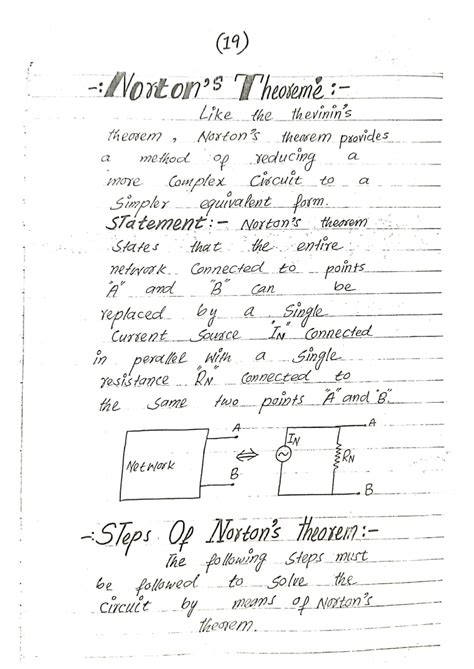 (19)
-: Norton's Theoreme :-
Like the thevinin's
theorem, Norton's theorem provides
a method of reducing a
more Complex Circuit to a
Simpler equivalent form.
STatement :- Norton's theorem
States that the entire
network Connected to points
"A" and "B" can be
replaced by a Single
Current Source "IN" Connected
in perallel with a Single
resistance "RN" Connected to
the Same two points "A" and "B".
A
IN
A
Network
RN
B
B
-: STeps Of Norton's theorem :-
The following Steps must
be followed to Solve the
Circuit by means of Norton's
theorem.